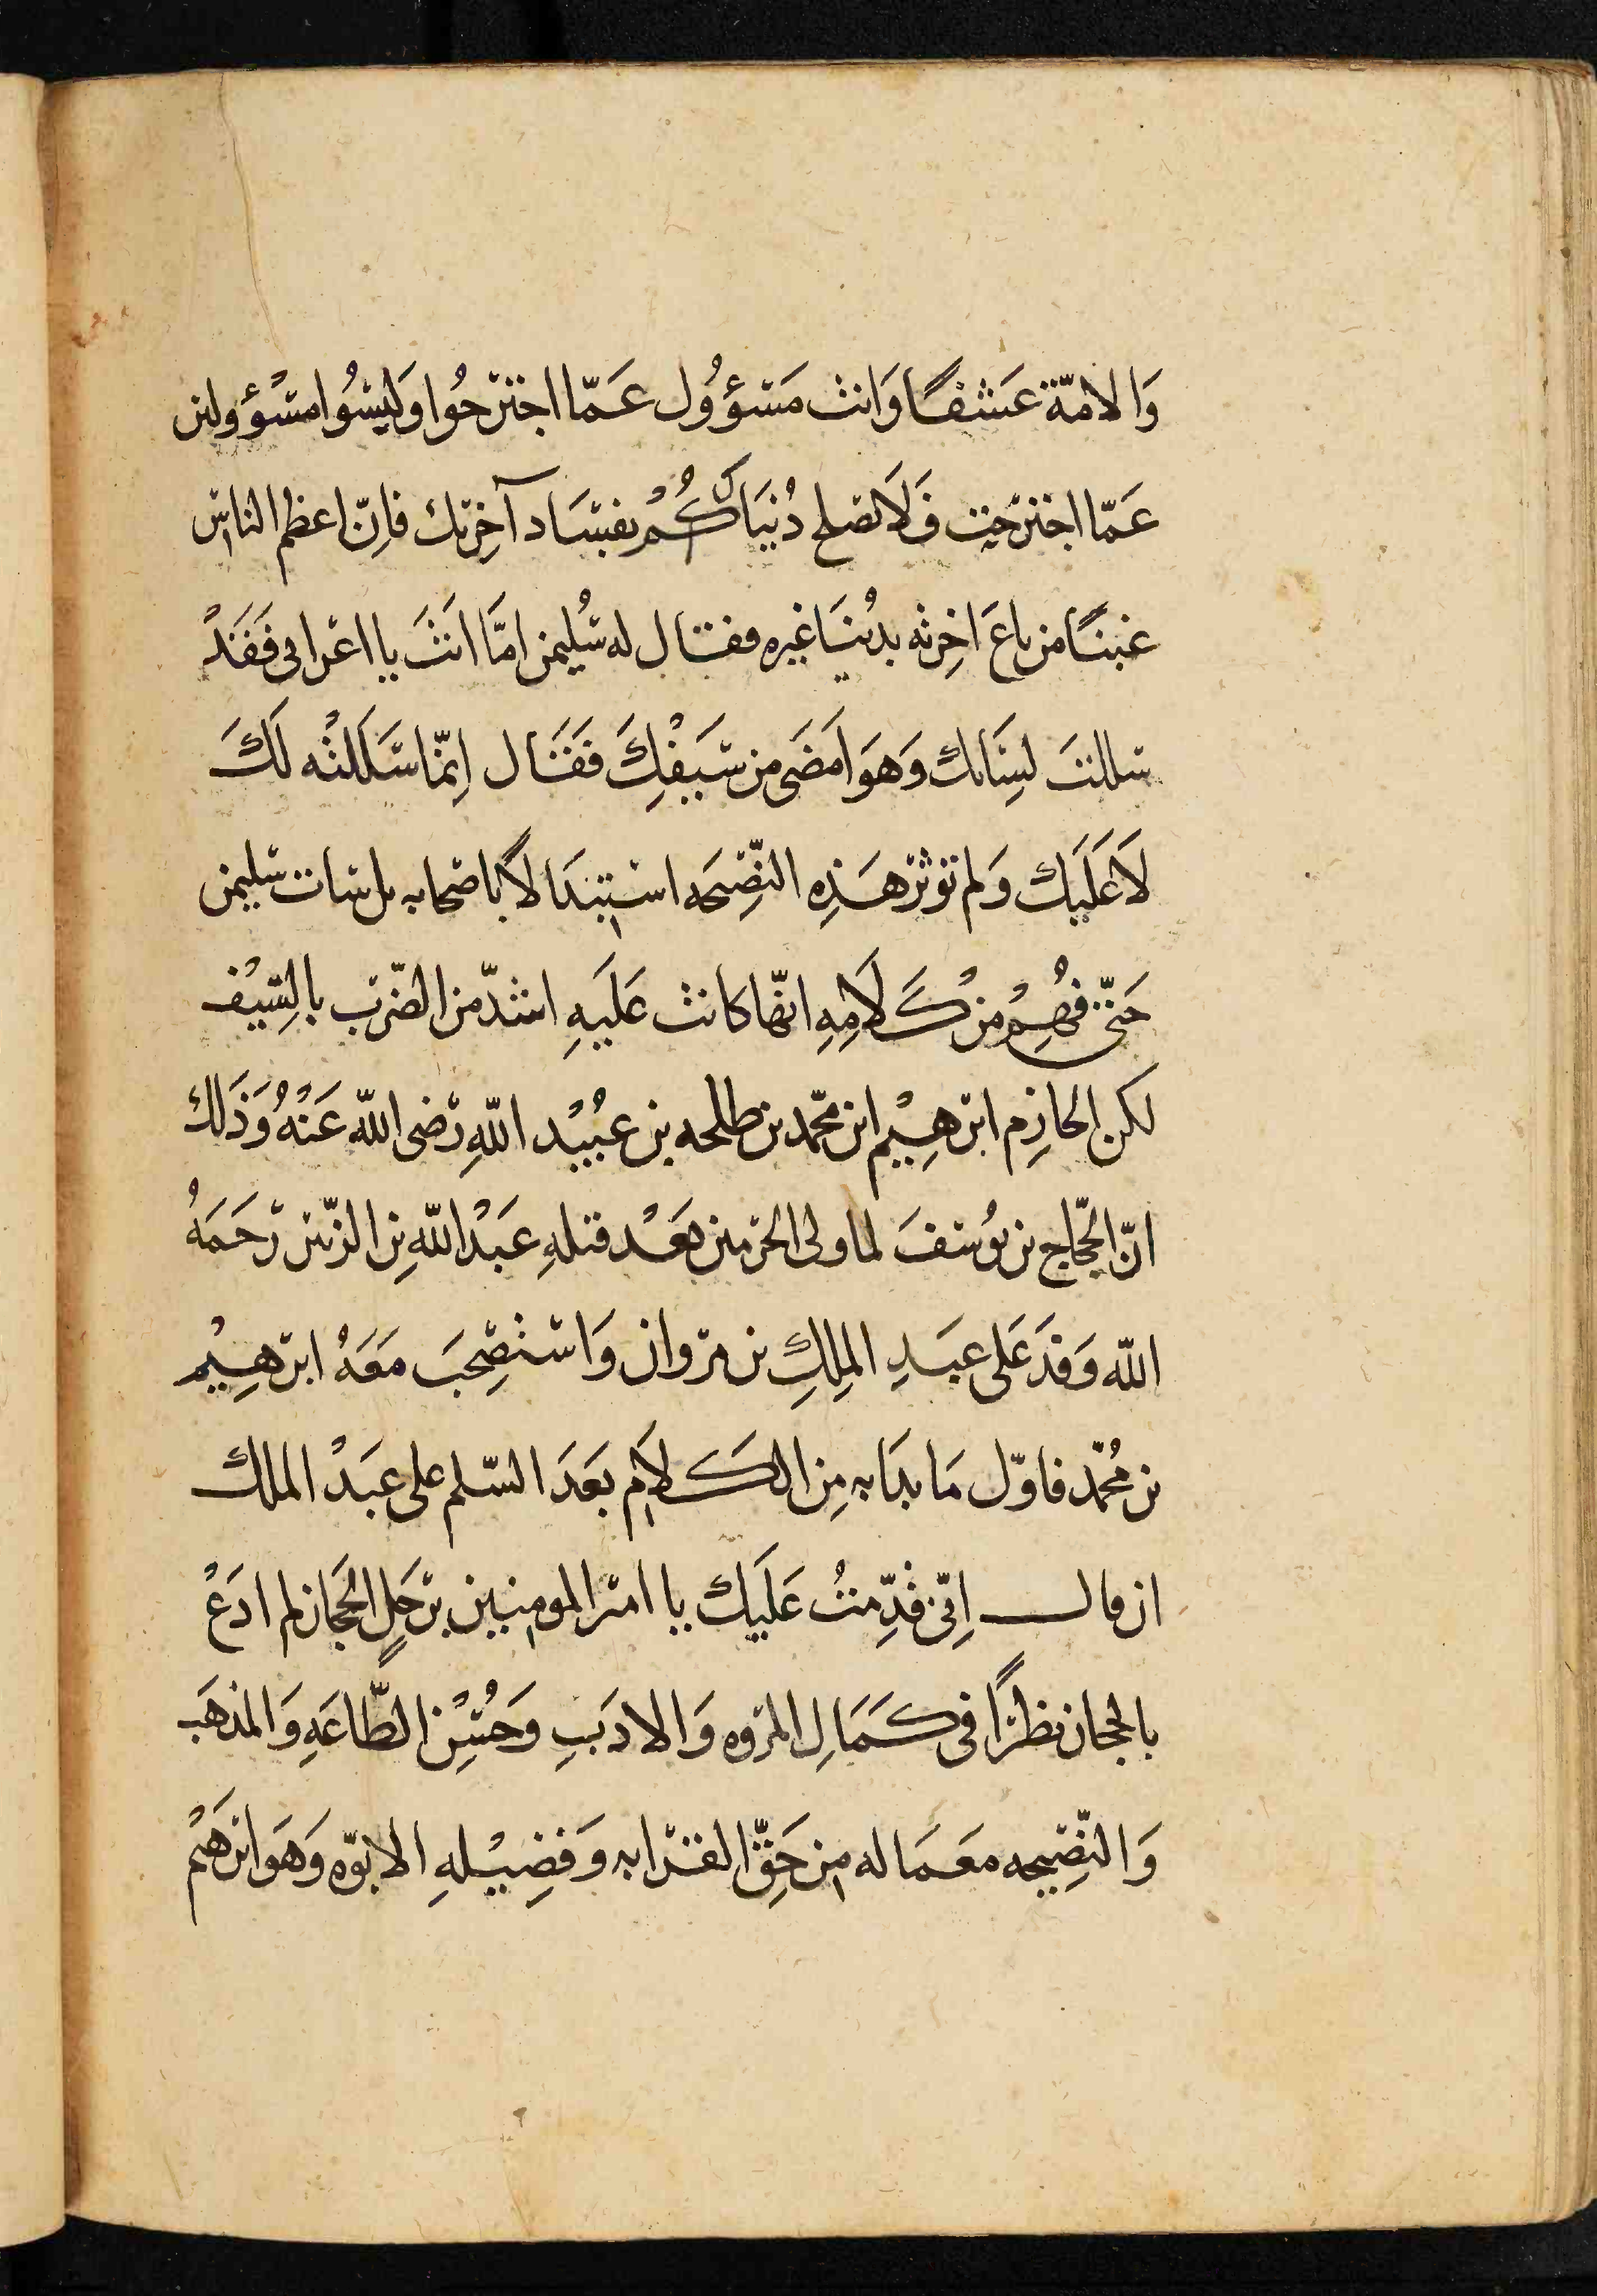 وَالامّة عَسْفًا وَانت مَسؤُول عَمّا اجترَحُوا وَلَيسُوا مسْؤولين
عَمّا اجترَحت فَلَا تصلح دُنيَاكُمْ بفسَاد آخِرتك فاِنّ اعظم الناس
غبنًا من باعَ اخِرته بدُنيَا غيره فقال له سُليمن امَّا انتَ يا اعرابى فَقَدْ
سللتَ لِسَانك وَهوَ اَمضَى من سَيْفِكَ فَقَال اِنمّا سَلَلتُه لَكَ
لَا عَلَيك وَلم تؤثر هَذِه النّصِيحَه استبدَالًا باصحابه بل سات سليمن
حَتّى فُهِمْ مِن كَلَامِهِ انّها كانت عَلَيهِ اشدّ من الضّرب بالسّيْف
لكن الحازِم ابرهِيْم ابن محمّد بن طلحه بن عُبيْد اللّهِ رَضى اللّه عَنْهُ وَذَلك
انّ الحجّاج بن يُوسفَ لما ولى الحرَمين بَعْد قتلهِ عَبْد اللّه بِن الزّبير رَحمَهُ
اللّه وَفدَ عَلى عَبدِ الملِكِ بن مروان وَاسْتصْحِبَ مَعَهُ ابرهِيْم
بن مُحمّد فاوّل مَا بدَا به مِن الكَلَام بَعدَ السّلم على عَبْد الملك
ان قال اِنّى قدِمتُ عَلَيك يا امير المومنين برَجلِ الحجَاز لم ادَعْ
بالحجاز نظيرًا فى كَمَالِ المروه وَالادَبِ وَحُسْنِ الطّاعَهِ وَالمذهَب
وَالنّصِيحه مَعَمَا له من حَقّ القرابه وَفضِيْلهِ الابوّه وَهوَ ابرَهيْم